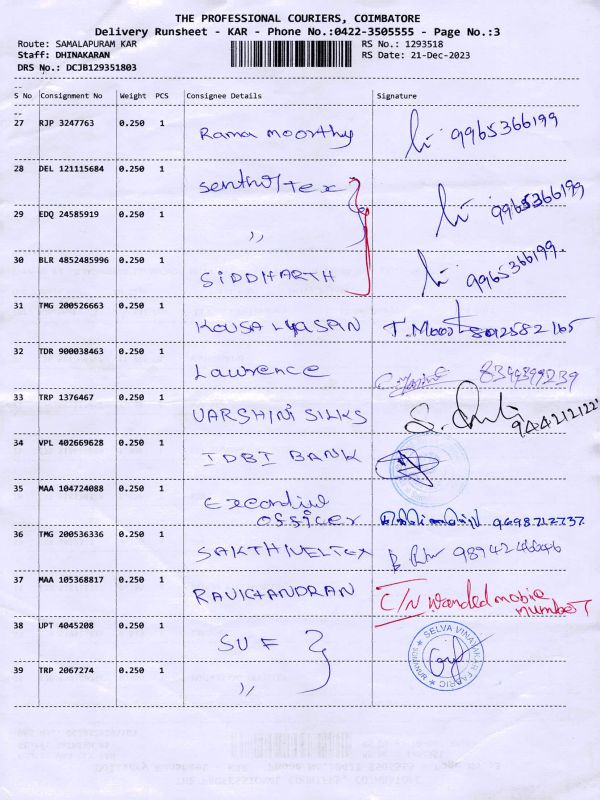 THE PROFESSIONAL COURIERS, COIMBATORE
Delivery Runsheet - KAR - Phone No.:0422-3505555 - Page No.:3
Route: SAMALAPURAM KAR RS No.: 1293518
Staff: DHINAKARAN RS Date: 21-Dec-2023
DRS No.: DCJB129351803
S No Consignment No Weight PCS Consignee Details Signature
27 RJP 3247763 0.250 1 Rama moorthy 9965366199
28 DEL 121115684 0.250 1 Senthil tex 9965366199
29 EDQ 24585919 0.250 1 ,,
30 BLR 4852485996 0.250 1 SIDDHARTH 9965366199.
31 TMG 200526663 0.250 1 KOUSALYA SPIN
32 TDR 900038463 0.250 1 Lawrence
33 TRP 1376467 0.250 1 VARSHINI SILKS
34 VPL 402669628 0.250 1 IDBI BANK
35 MAA 104724088 0.250 1 Executive
officer 9698712737
36 TMG 200536336 0.250 1 SAKTHIVEL Tex
37 MAA 105368817 0.250 1 RAVICHANDRAN C/N wanded mobie
number
38 UPT 4045208 0.250 1 SUF SELVA VINAYAKAR FABRIC
39 TRP 2067274 0.250 1 ,,